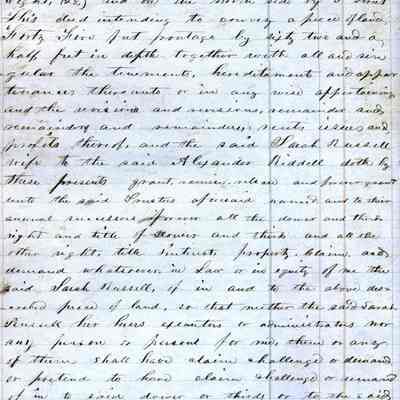 and on the North side by a
This deed intending to convey a piece of land
Forty Five feet frontage by sixty two and a
half feet in depth together with all and sin
gular the tenements, heredetament and appur
tenances thereunto or in any wise appertaining
and the revision and revisions, remainder and
remainders and remainders, rents issues and
profits thereof, and the said Sarah Russell
wife to the said Alexander Riddell doth by
these presents grant, remise, release and forever grant
unto the said Trustees aforesaid named and to their
several successors forever all the dower and thirds
right and title of dower and thirds and all the
other right, title Interest, property, Claim and
demand whatsoever, in Law or in equity of me the
said Sarah Russell, of in and to the above des
cribed piece of land, so that neither the said Sarah
Russell her heirs executors or administrators nor
any person or persons for me, them or any
of them shall have claim challenge or demand
or pretend to have claim challenge or demand
of in to said dower or thirds or to the said